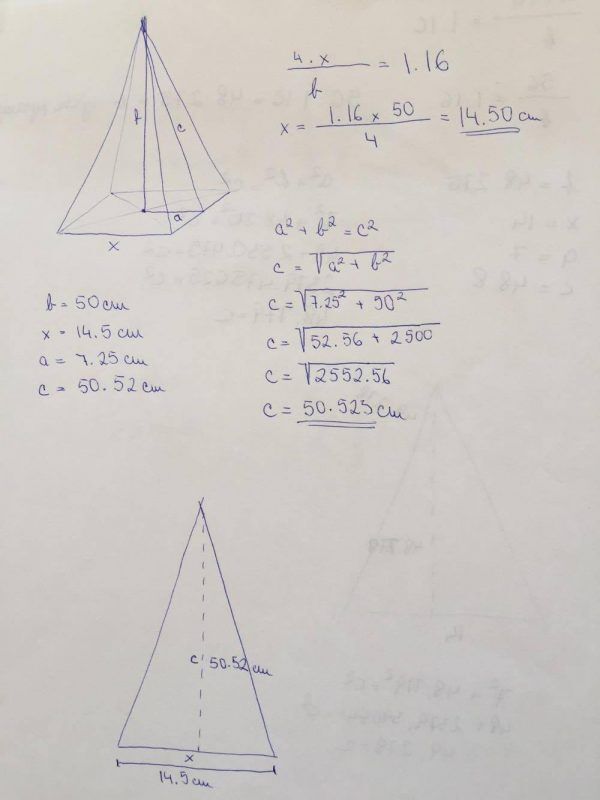 b
c
a
x
4.x / b = 1.16
x = 1.16 x 50 / 4 = 14.50 cm
a² + b² = c²
c = √a² + b²
c = √7.25² + 50²
c = √52.56 + 2500
c = √2552.56
c = 50.523 cm
b = 50 cm
x = 14.5 cm
a = 7.25 cm
c = 50.52 cm
c 50.52 cm
x
14.5 cm